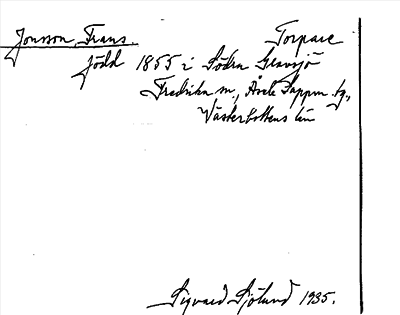 Jonsson, Frans. Torpare
född 1855 i Södra Gravsjö
Fredrika sn, Åsele Lappm. tg.,
Västerbottens län
Sigvard Sjölund 1935.